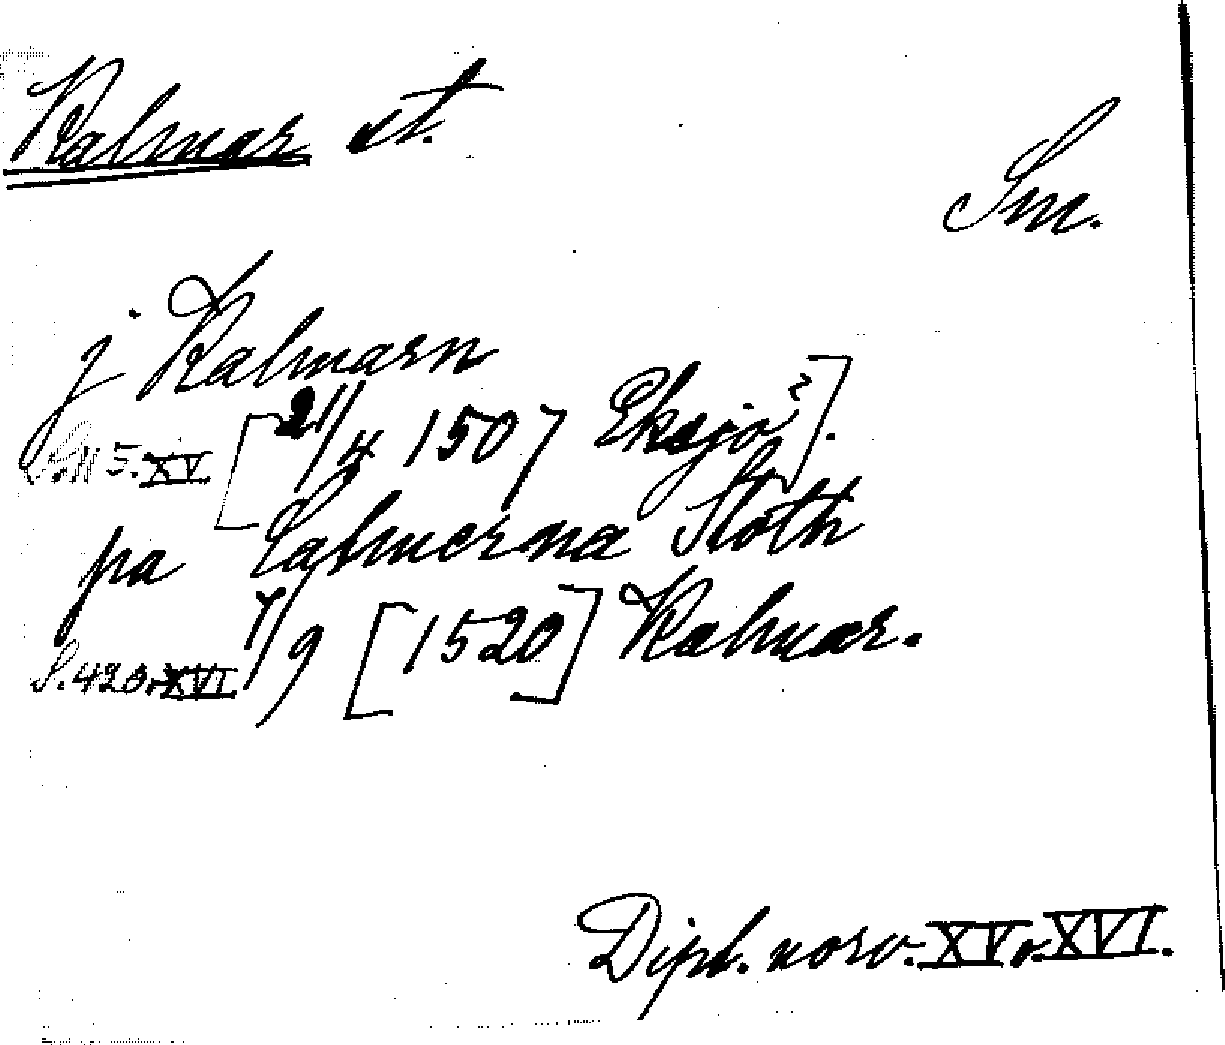 Kalmar st.
Sm.
j Kalmarn
S. 115. XV. [21/4 1507 Eksjö?].
pa Calmerna Sloth
S. 420. XVI 7/9 [1520] Kalmar.
Dipl. norv. XV o. XVI.